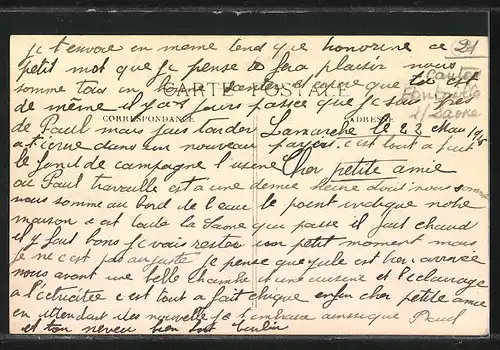 je t'envoie en meme tend que honorine ce
petit mot que je pense te fera plaisir nous
somme tous en bonne santer et croire que toi est
de même il y a 8 jours passee que je suis près
CARTE POSTALE
CORRESPONDANCE
ADRESSE
de Paul mais pas tarder
a t'écrire dans un nouveau parjers. c'est tout a fait
le fond de campagne l'usine
Lamarche le 22 Mai 19
Cher petite amie
ou Paul travaille est a une demie heure dont nous somme
nous somme au bord de l'eau le point indique notre
maison c est toute la Saone qui passe il fait chaud
il y fait bons je vais rester un petit moment mais
je ne c'est pas au juste je pense que Jule est bien arrivée
nous avont une belle chambre et une cuisine et l'éclairage
a l'électricitée c est tout a fait chique enfin cher petite amie
en attendant des nouvelle je t'embrasse ainssique Paul
et ton neveu bien fort
21
Canton
Pontailler
s/ Saone